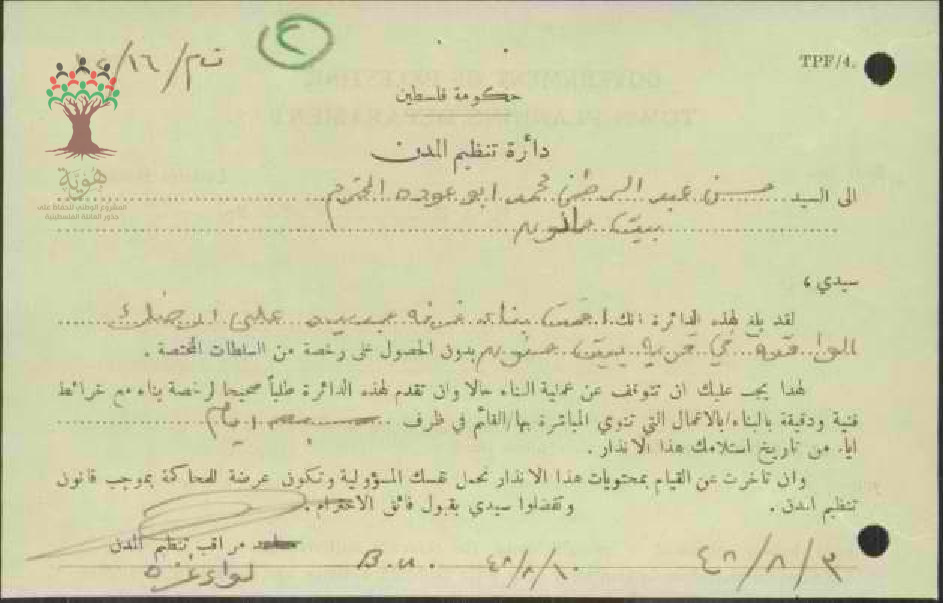 TPF/4.
ت م/١٦/
٢
حكومة فلسطين
دائرة تنظيم المدن
هوية
المشروع الوطني للحفاظ على
جذور العائلة الفلسطينية
الى السيد حسن عبد الرحمن محمد ابو عوده المحترم
بيت حانون
سيدي ،
لقد بلغ لهذه الدائرة انك اقمت بناء غرفة على ارضك
الواقعة في قرية بيت حنون بدون الحصول على رخصة من السلطات المختصة .
لهذا يجب عليك ان تتوقف عن عملية البناء حالا وان تقدم لهذه الدائرة طلباً صحيحا لرخصة بناء مع خرائط
فنية ودقيقة بالبناء/بالاعمال التي تنوي المباشرة بها/القائم في ظرف سبعة ايام
اياء من تاريخ استلامك هذا الانذار .
وان تأخرت عن القيام بمحتويات هذا الانذار تحمل نفسك المسؤولية وتكون عرضة للمحاكمة بموجب قانون
تنظيم المدن . وتفضلوا سيدي بقبول فائق الاحترام .
مراقب تنظيم المدن
لواء غزه
٤٥/٨/١٠
٤٥/٨/٣